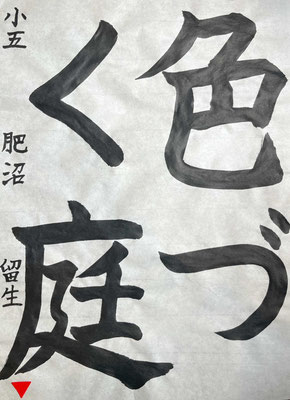 色づ
く庭
小五 肥沼 留生